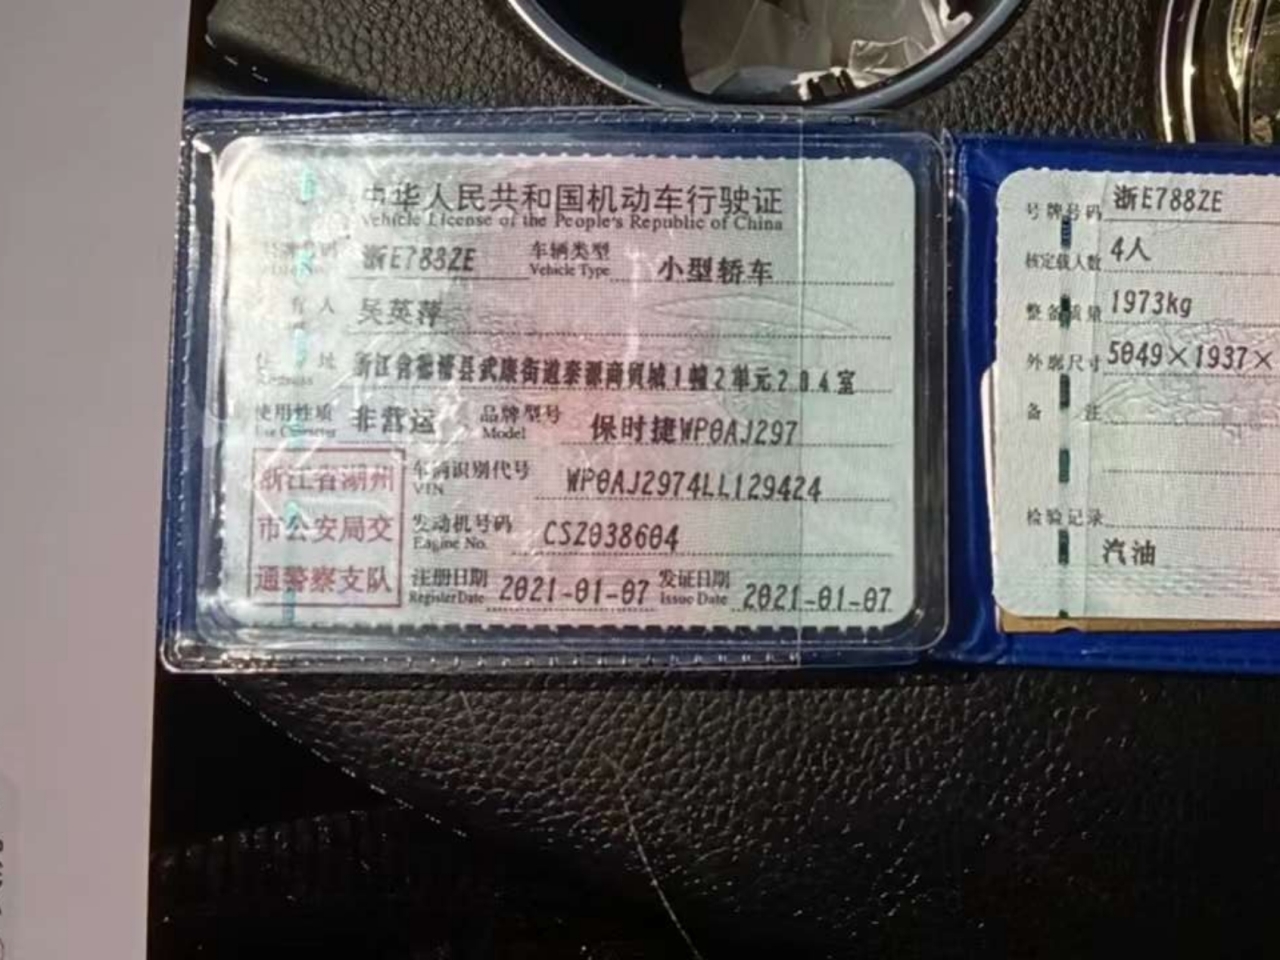 中华人民共和国机动车行驶证
Vehicle License of the People's Republic of China
号牌号码 浙E788ZE 车辆类型 小型轿车
Plate No. Vehicle Type
所有人 吴英萍
住址 浙江省德清县武康街道泰源商贸城1幢2单元204室
Address
使用性质 非营运 品牌型号 保时捷WP0AJ297
Use Character Model
浙江省湖州
市公安局交
通警察支队
车辆识别代号 WP0AJ2974LL129424
VIN
发动机号码 CSZ038604
Engine No.
注册日期 2021-01-07 发证日期 2021-01-07
Register Date Issue Date
号牌号码 浙E788ZE
核定载人数 4人
整备质量 1973kg
外廓尺寸 5049×1937×
备注
检验记录
汽油